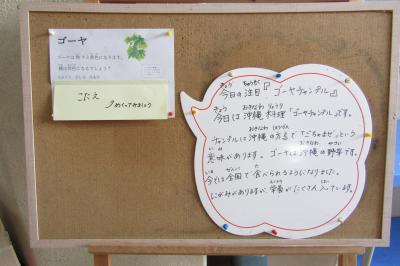 ゴーヤ
こたえ
めくってみましょう
きょう ちゅうもく
今日の注目『ゴーヤチャンプル』
きょう おきなわ りょうり
今日は沖縄料理「ゴーヤチャンプル」です。
おきなわ ほうげん
チャンプルは沖縄の方言で「ごちゃまぜ」という
いみ おきなわ やさい
意味があります。ゴーヤは沖縄の野菜です。
いま ぜんこく た
今では全国で食べられるようになりました。
えいよう はい
にがみがありますが、栄養がたくさん入っています。